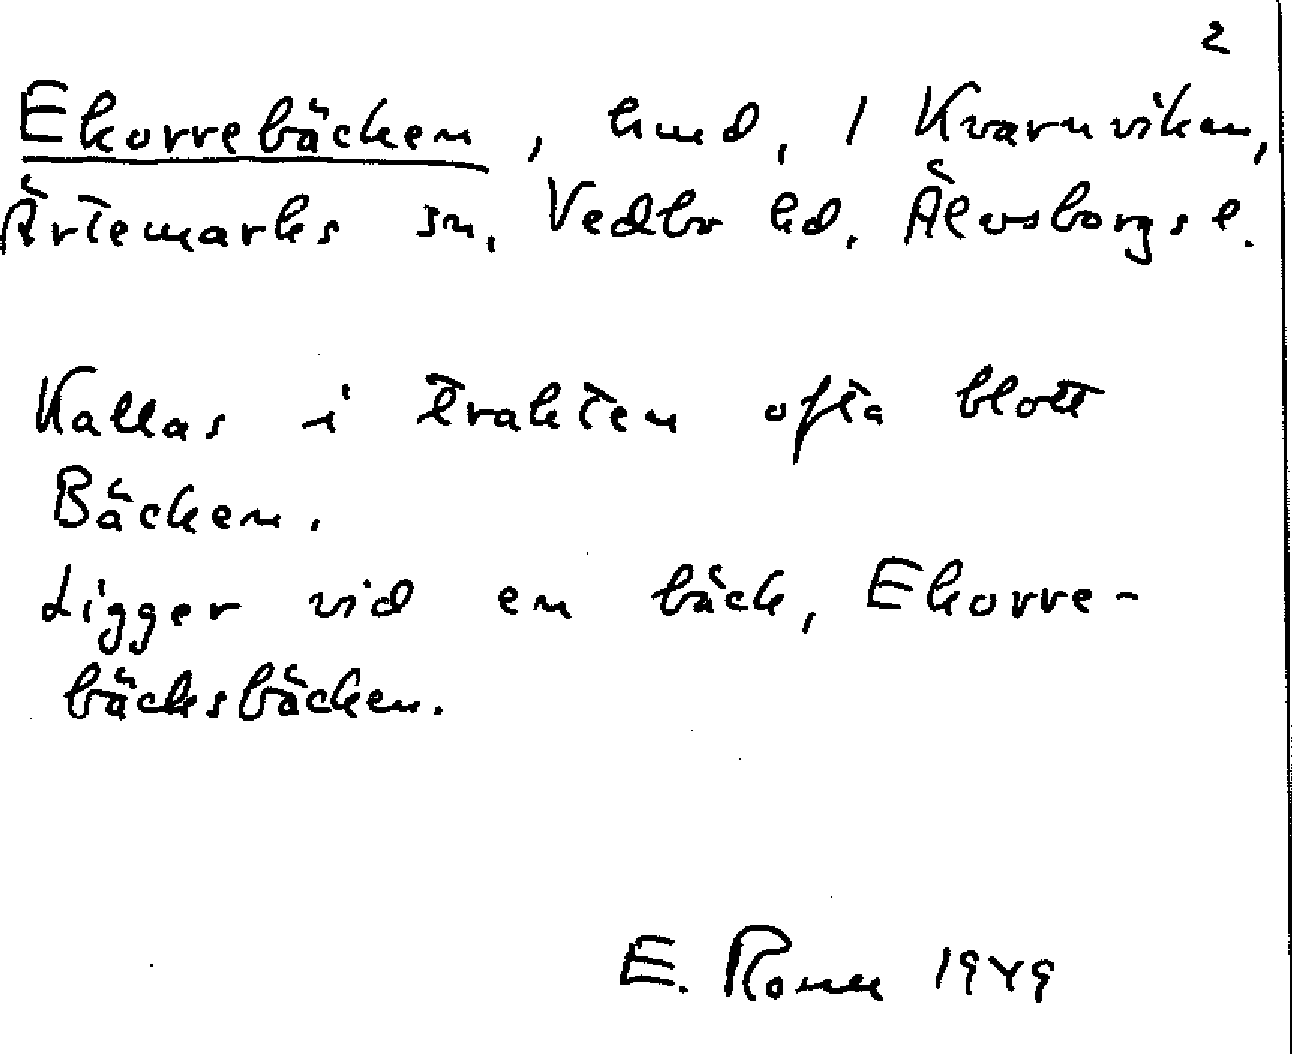 2
Ekorrebäcken, hmd, 1 Kvarnviken,
Ärtemarks sn, Vedbo hd, Älvsborgs l.
Kallas i trakten ofta blott
Bäcken.
Ligger vid en bäck, Ekorre-
bäcksbäcken.
E. 1949